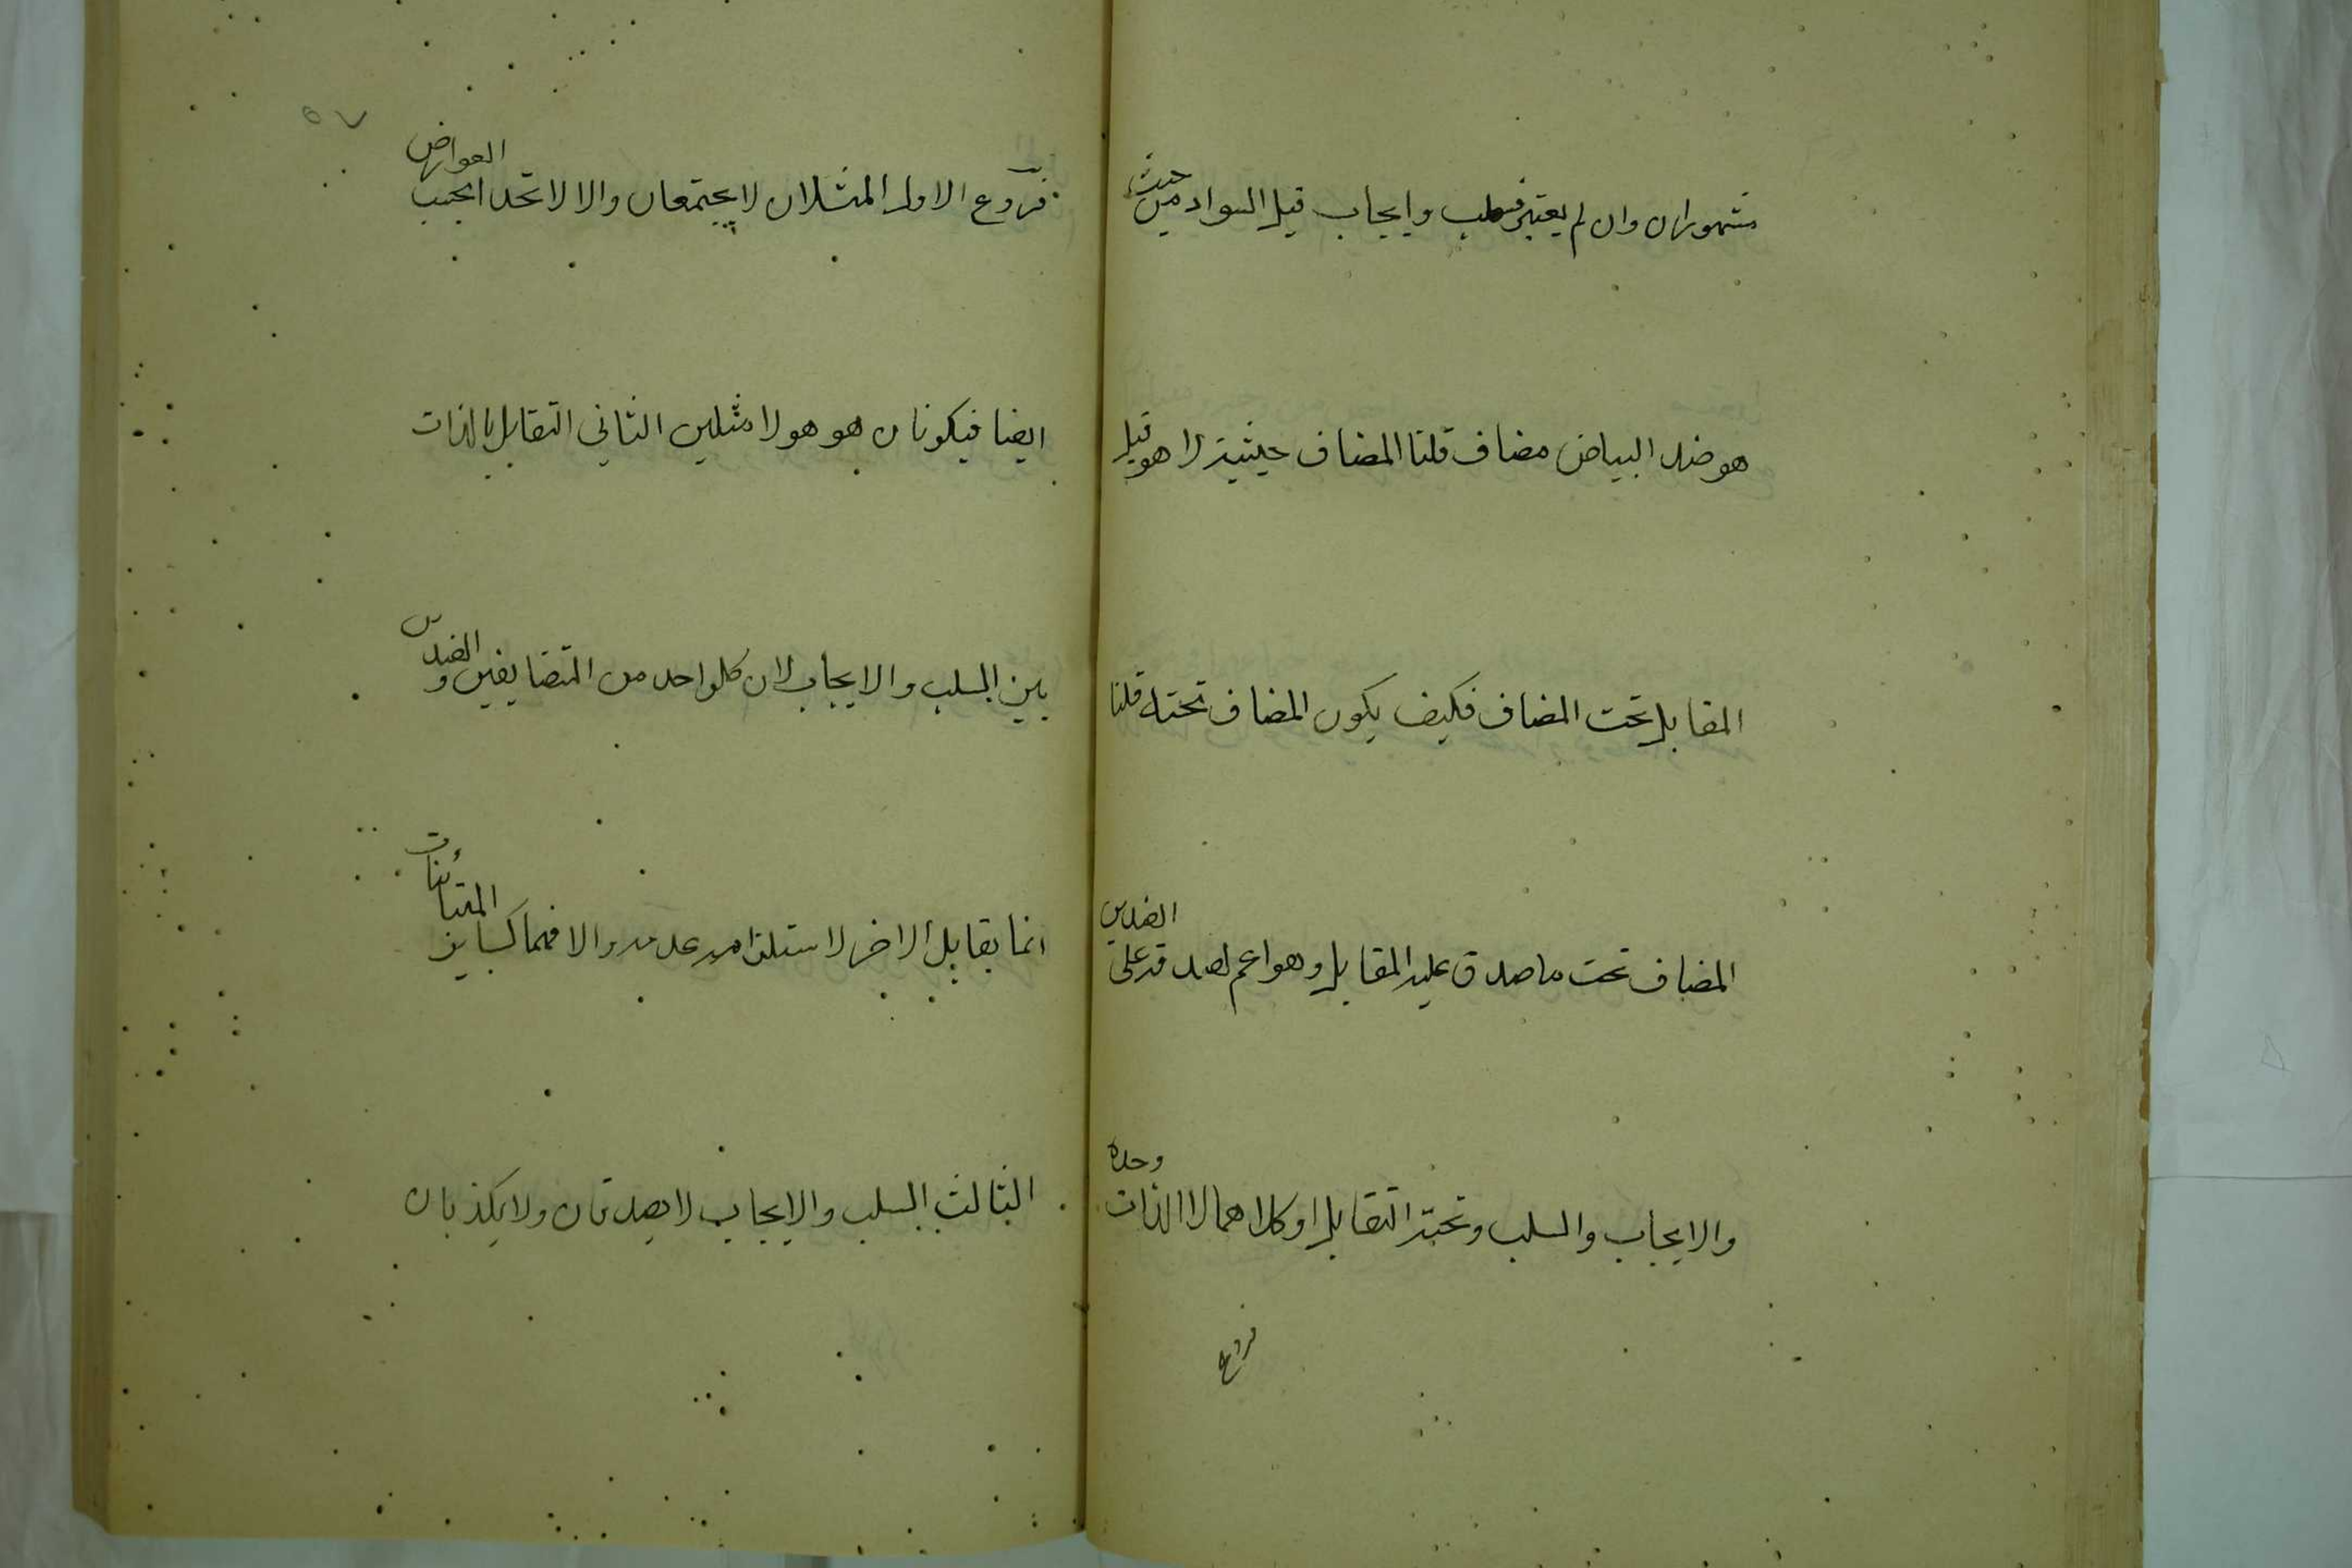 مشهوران وان لم يعتبر فسلب وايجاب قيل السواد من حيث
هو ضد البياض مضاف قلنا المضاف حيثيته لا هو قيل
المقابل تحت المضاف فكيف يكون المضاف تحته قلنا
المضاف تحت ما صدق عليه المقابل وهو اعم لصدقه على الضدين
والايجاب والسلب وتحته التقابل او كلاهما لا الذات وحده
فروع
٥٧
فروع الاول المثلان لا يجتمعان والا لاتحدا بحسب العوارض
ايضا فيكونان هو هو لا مثلين الثاني التقابل بالذات
بين السلب والايجاب لان كل واحد من المتضايفين والضدين
انما يقابل الاخر لاستلزامه عدمه والا فهما كساير المتباينات
الثالث السلب والايجاب لا يصدقان ولا يكذبان